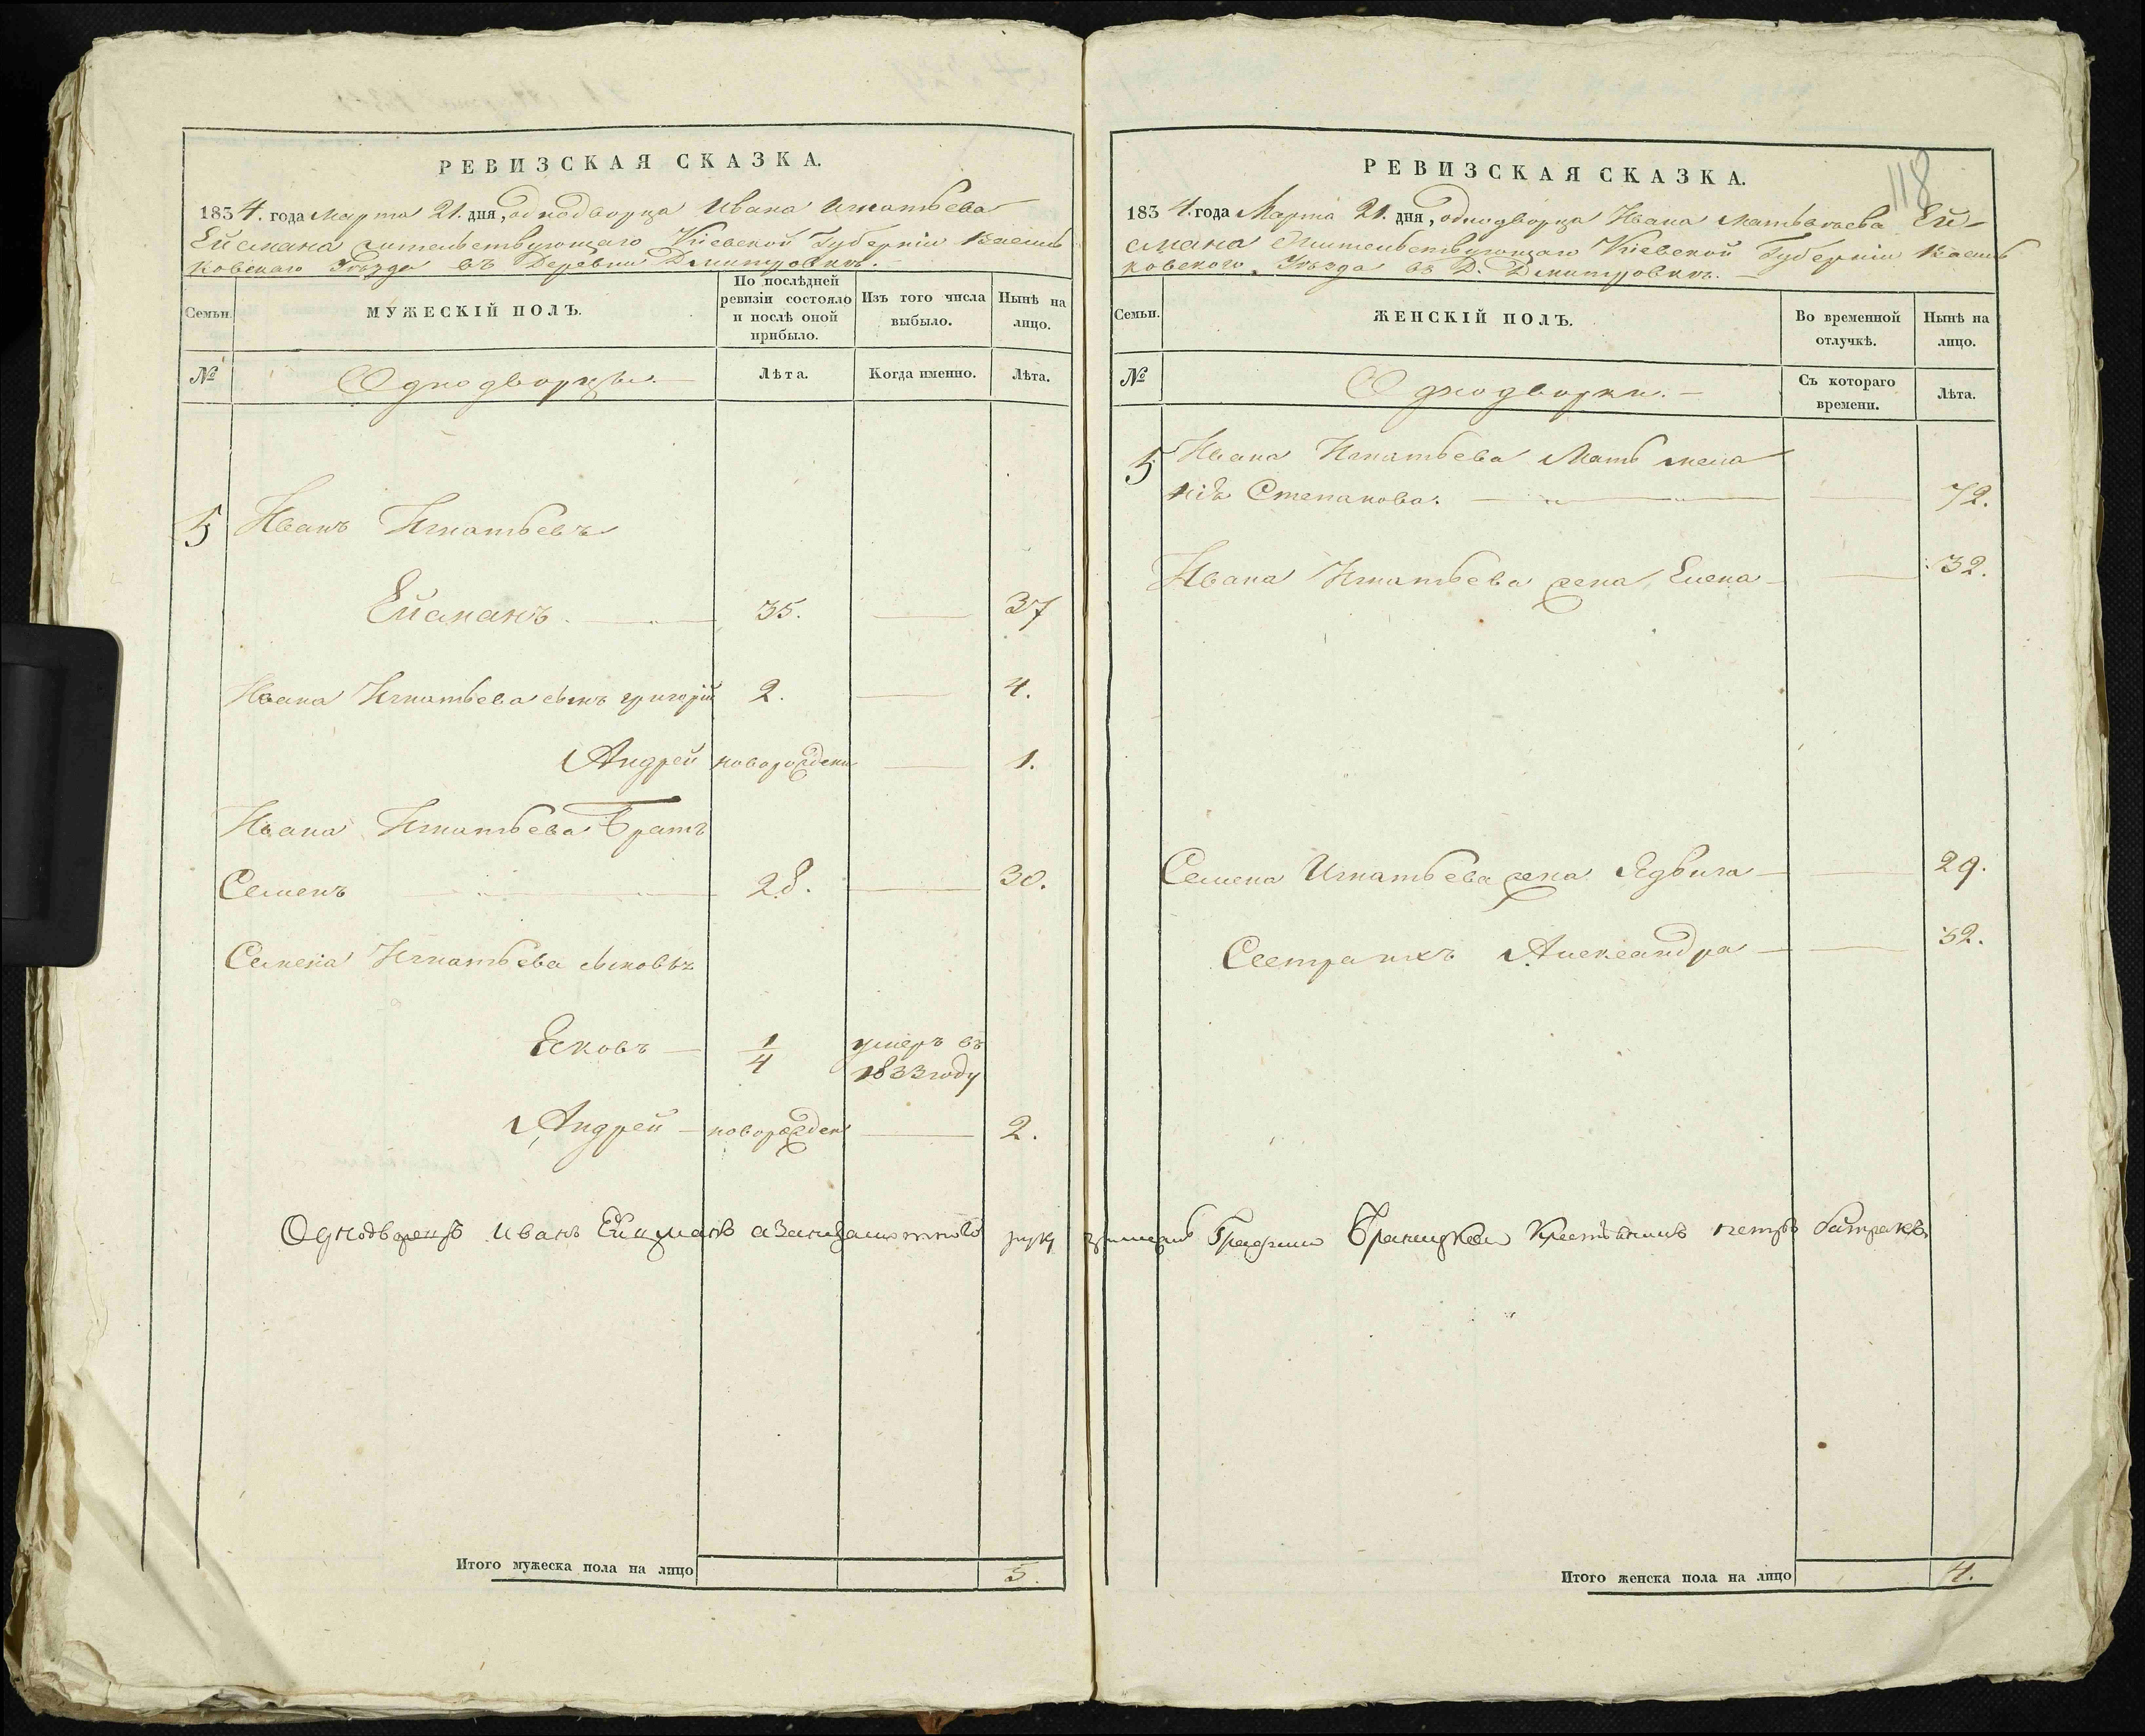 РЕВИЗСКАЯ СКАЗКА.
1834. года Марта 21. дня, однодворца Ивана Игнатьева
Ейсмана жительствующаго Кіевской Губерніи Василь
ковскаго Уѣзда въ Деревни Дмитровкѣ.
Семьи.
МУЖЕСКІЙ ПОЛЪ.
По послѣдней ревизіи состояло и послѣ оной прибыло.
Изъ того числа выбыло.
Нынѣ на лицо.
№
Однодворцы.
Лѣта.
Когда именно.
Лѣта.
5 Иванъ Игнатьевъ
Ейсманъ 35. 37
Ивана Игнатьева сынъ григорій 2. 4.
Андрей новорожден 1.
Ивана Игнатьева Братъ
Семенъ 28. 30.
Семена Игнатьева сыновья
Яковъ 1/4 умеръ въ
1833 году
Андрей новорожден 2.
Итого мужеска пола на лицо 5.
118
РЕВИЗСКАЯ СКАЗКА.
1834. года Марта 21. дня, однодворца Ивана Ей-
смана Жительствующаго Кіевской Губерніи Василь
ковского Уѣзда въ Д. Дмитровкѣ.
Семьи.
ЖЕНСКІЙ ПОЛЪ.
Во временной отлучкѣ.
Нынѣ на лицо.
№
Однодворки.
Съ котораго времени.
Лѣта.
5 Ивана Игнатьева Мать
Степанова. 72.
Ивана Игнатьева жена Елена 32.
Семена Игнатьева жена Ядвига 29.
Сестра ихъ Александра 32.
Однодворецъ Иванъ Ейсманъ а за него руку Графини Браницкой Крестьянинъ петръ
Итого женска пола на лицо 4.